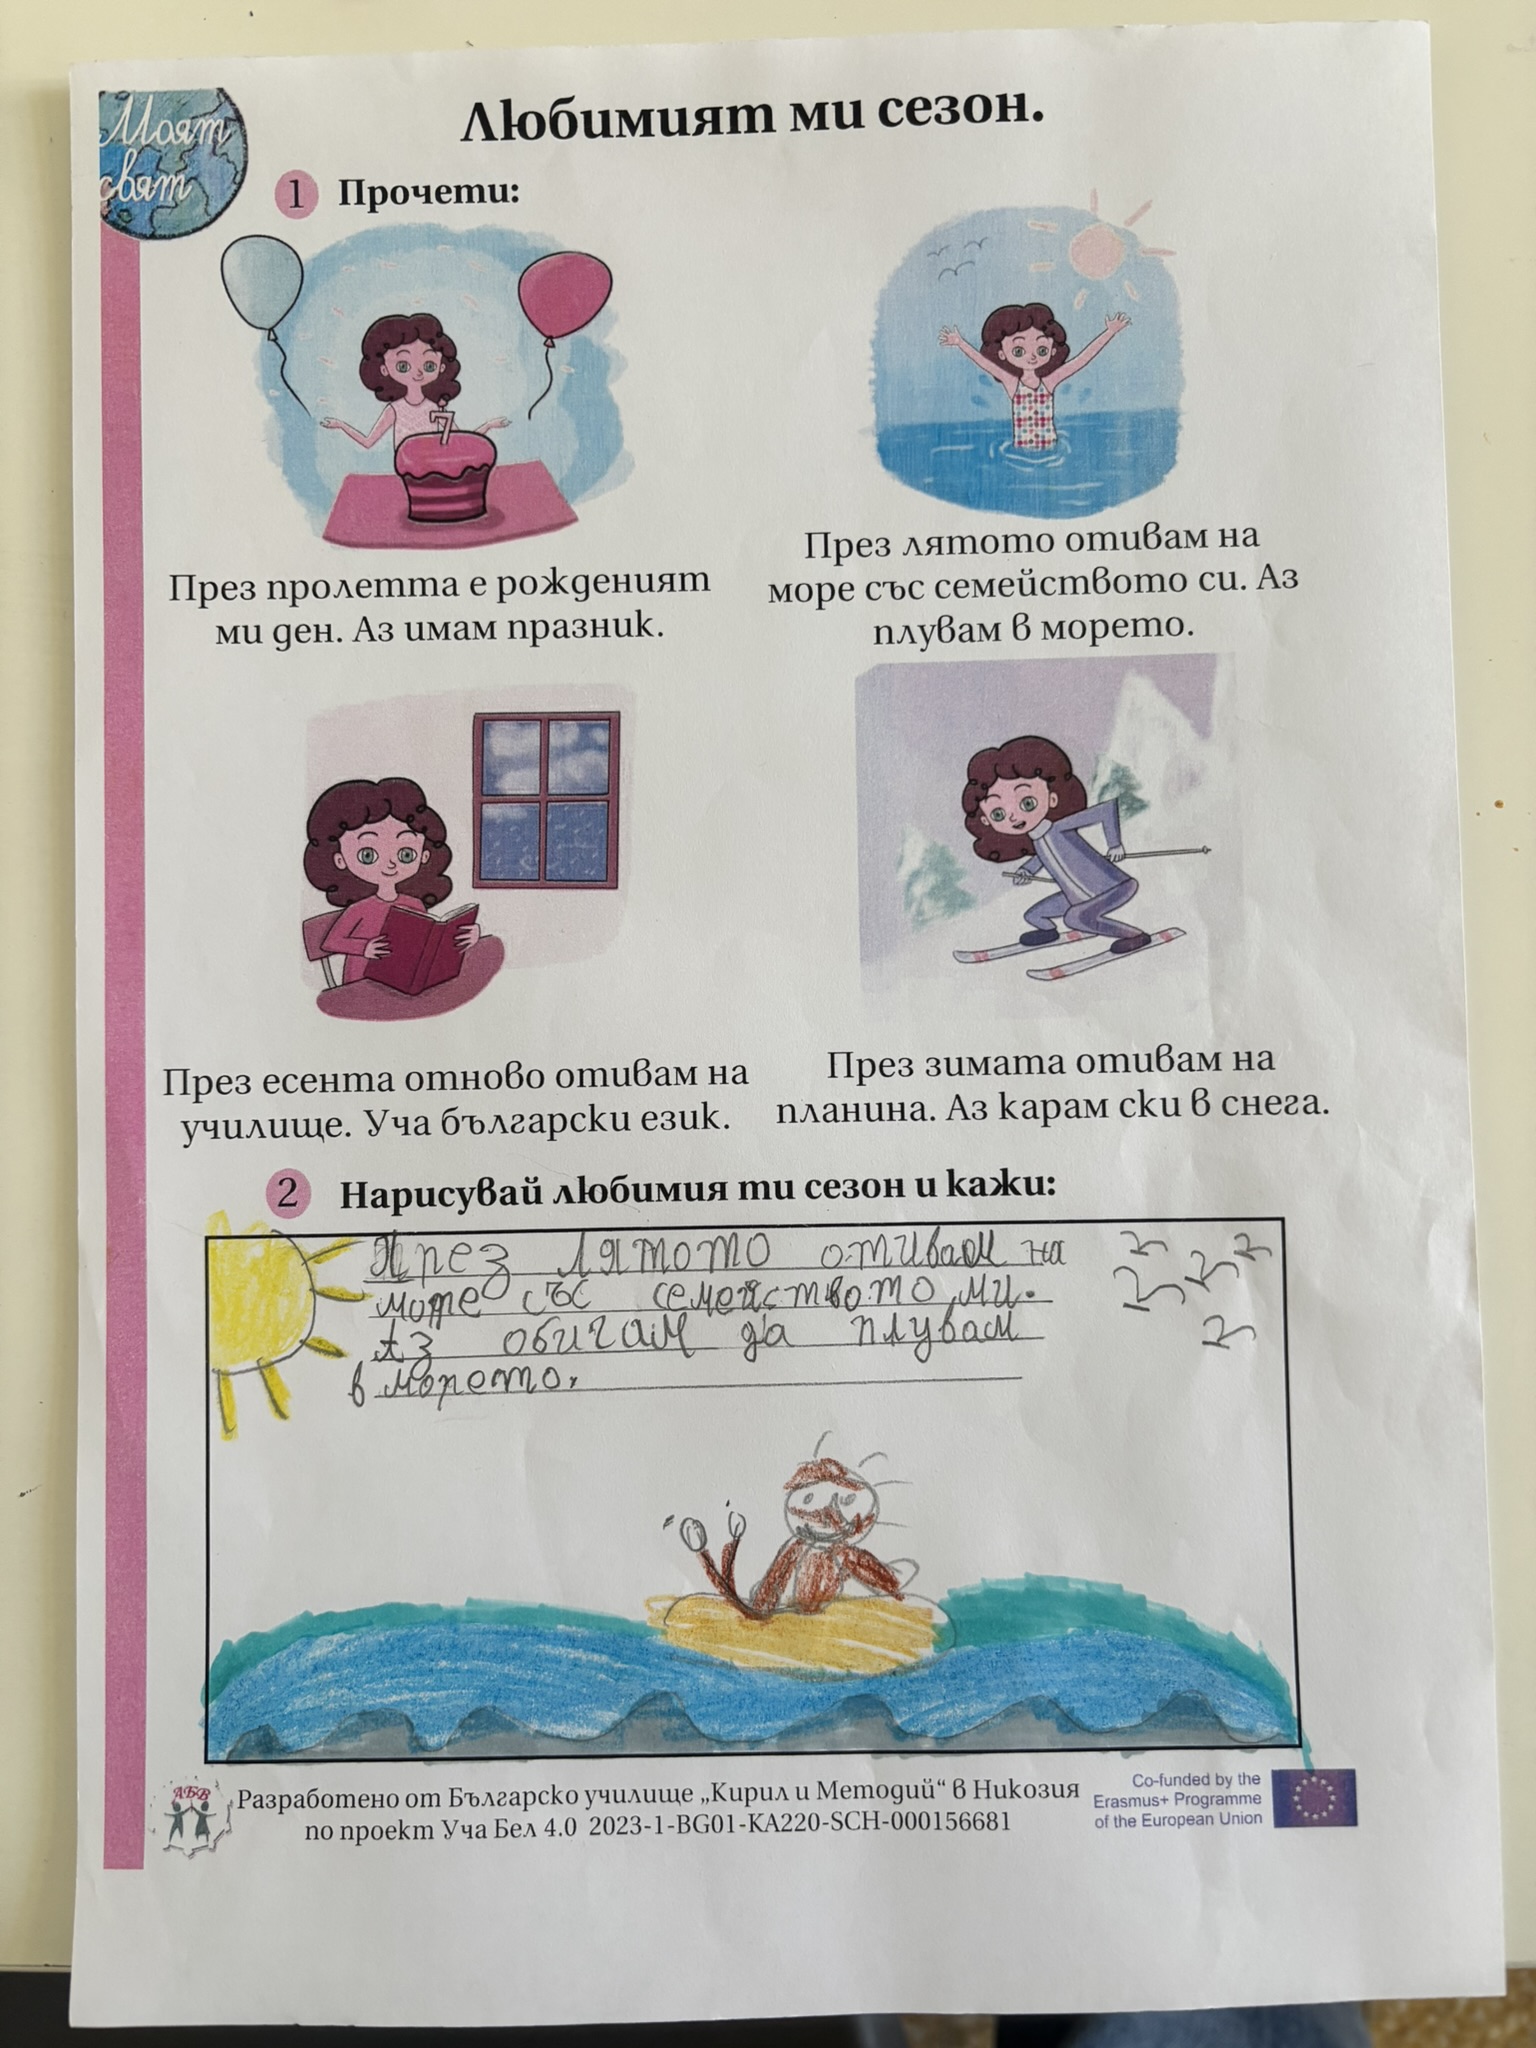 Моят
свят
Любимият ми сезон.
1 Прочети:
7
През пролетта е рожденият
ми ден. Аз имам празник.
През лятото отивам на
море със семейството си. Аз
плувам в морето.
През есента отново отивам на
училище. Уча български език.
През зимата отивам на
планина. Аз карам ски в снега.
2 Нарисувай любимия ти сезон и кажи:
През лятото отивам на
море със семейството ми.
Аз обичам да плувам
в морето.
АБВ
Разработено от Българско училище „Кирил и Методий“ в Никозия
по проект Уча Бел 4.0 2023-1-BG01-KA220-SCH-000156681
Co-funded by the
Erasmus+ Programme
of the European Union